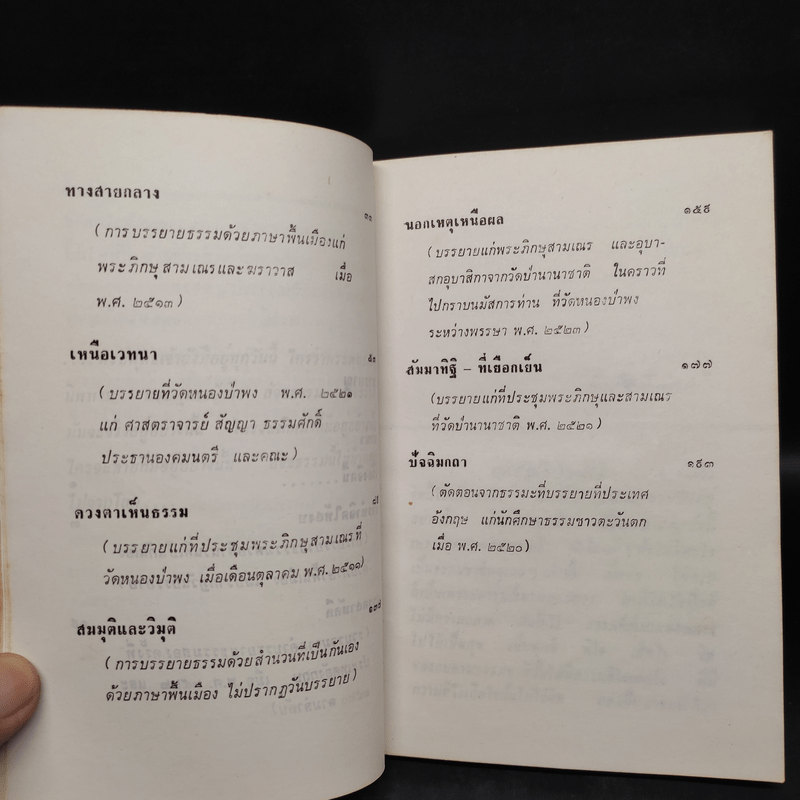 ทางสายกลาง
๓๓
(การบรรยายธรรมด้วยภาษาพื้นเมืองแก่
พระภิกษุสามเณรและฆราวาส เมื่อ
พ.ศ. ๒๕๑๓)
เหนือเวทนา
(บรรยายที่วัดหนองป่าพง พ.ศ. ๒๕๒๑
แก่ ศาสตราจารย์ สัญญา ธรรมศักดิ์
ประธานองคมนตรี และคณะ)
ดวงตาเห็นธรรม
(บรรยายแก่ที่ประชุมพระภิกษุสามเณรที่
วัดหนองป่าพง เมื่อเดือนตุลาคม พ.ศ. ๒๕๑๑)
สมมุติและวิมุติ
(การบรรยายธรรมด้วยสำนวนที่เป็นกันเอง
ด้วยภาษาพื้นเมือง ไม่ปรากฏวันบรรยาย)
นอกเหตุเหนือผล ๑๕๙
(บรรยายแก่พระภิกษุสามเณร และอุบา-
สกอุบาสิกาจากวัดป่านานาชาติ ในคราวที่
ไปกราบนมัสการท่าน ที่วัดหนองป่าพง
ระหว่างพรรษา พ.ศ. ๒๕๒๓)
สัมมาทิฐิ – ที่เยือกเย็น ๑๗๗
(บรรยายแก่ที่ประชุมพระภิกษุและสามเณร
ที่วัดป่านานาชาติ พ.ศ. ๒๕๒๑)
ปัจฉิมกถา ๑๙๓
(ตัดตอนจากธรรมะที่บรรยายที่ประเทศ
อังกฤษ แก่นักศึกษาธรรมชาวตะวันตก
เมื่อ พ.ศ. ๒๕๒๐)